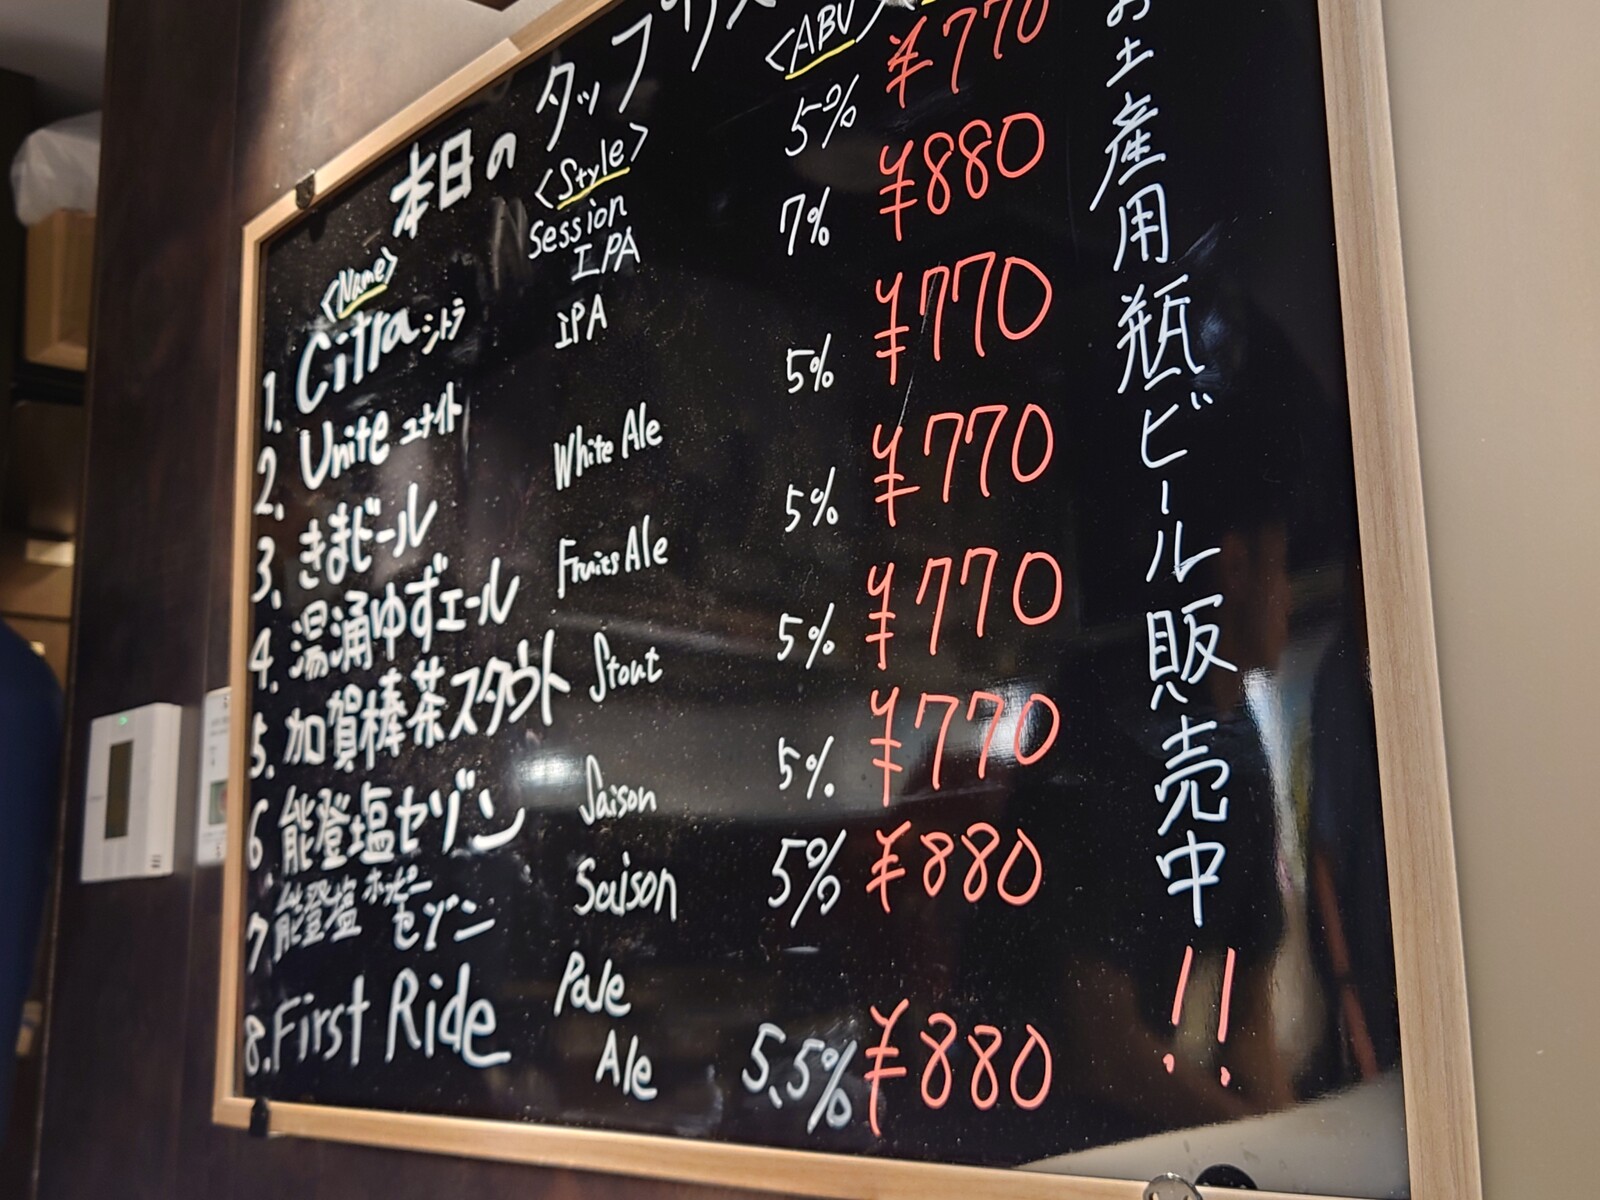 本日のタップリス
<Name> <Style> <ABV>
1. Citra シトラ Session IPA 5% ¥770
2. Unite ユナイト IPA 7% ¥880
3. きまビール White Ale 5% ¥770
4. 湯涌ゆずエール Fruits Ale 5% ¥770
5. 加賀棒茶スタウト Stout 5% ¥770
6. 能登塩セゾン Saison 5% ¥770
7. 能登塩ホッピーセゾン Saison 5% ¥880
8. First Ride Pale Ale 5.5% ¥880
お土産用瓶ビール販売中!!